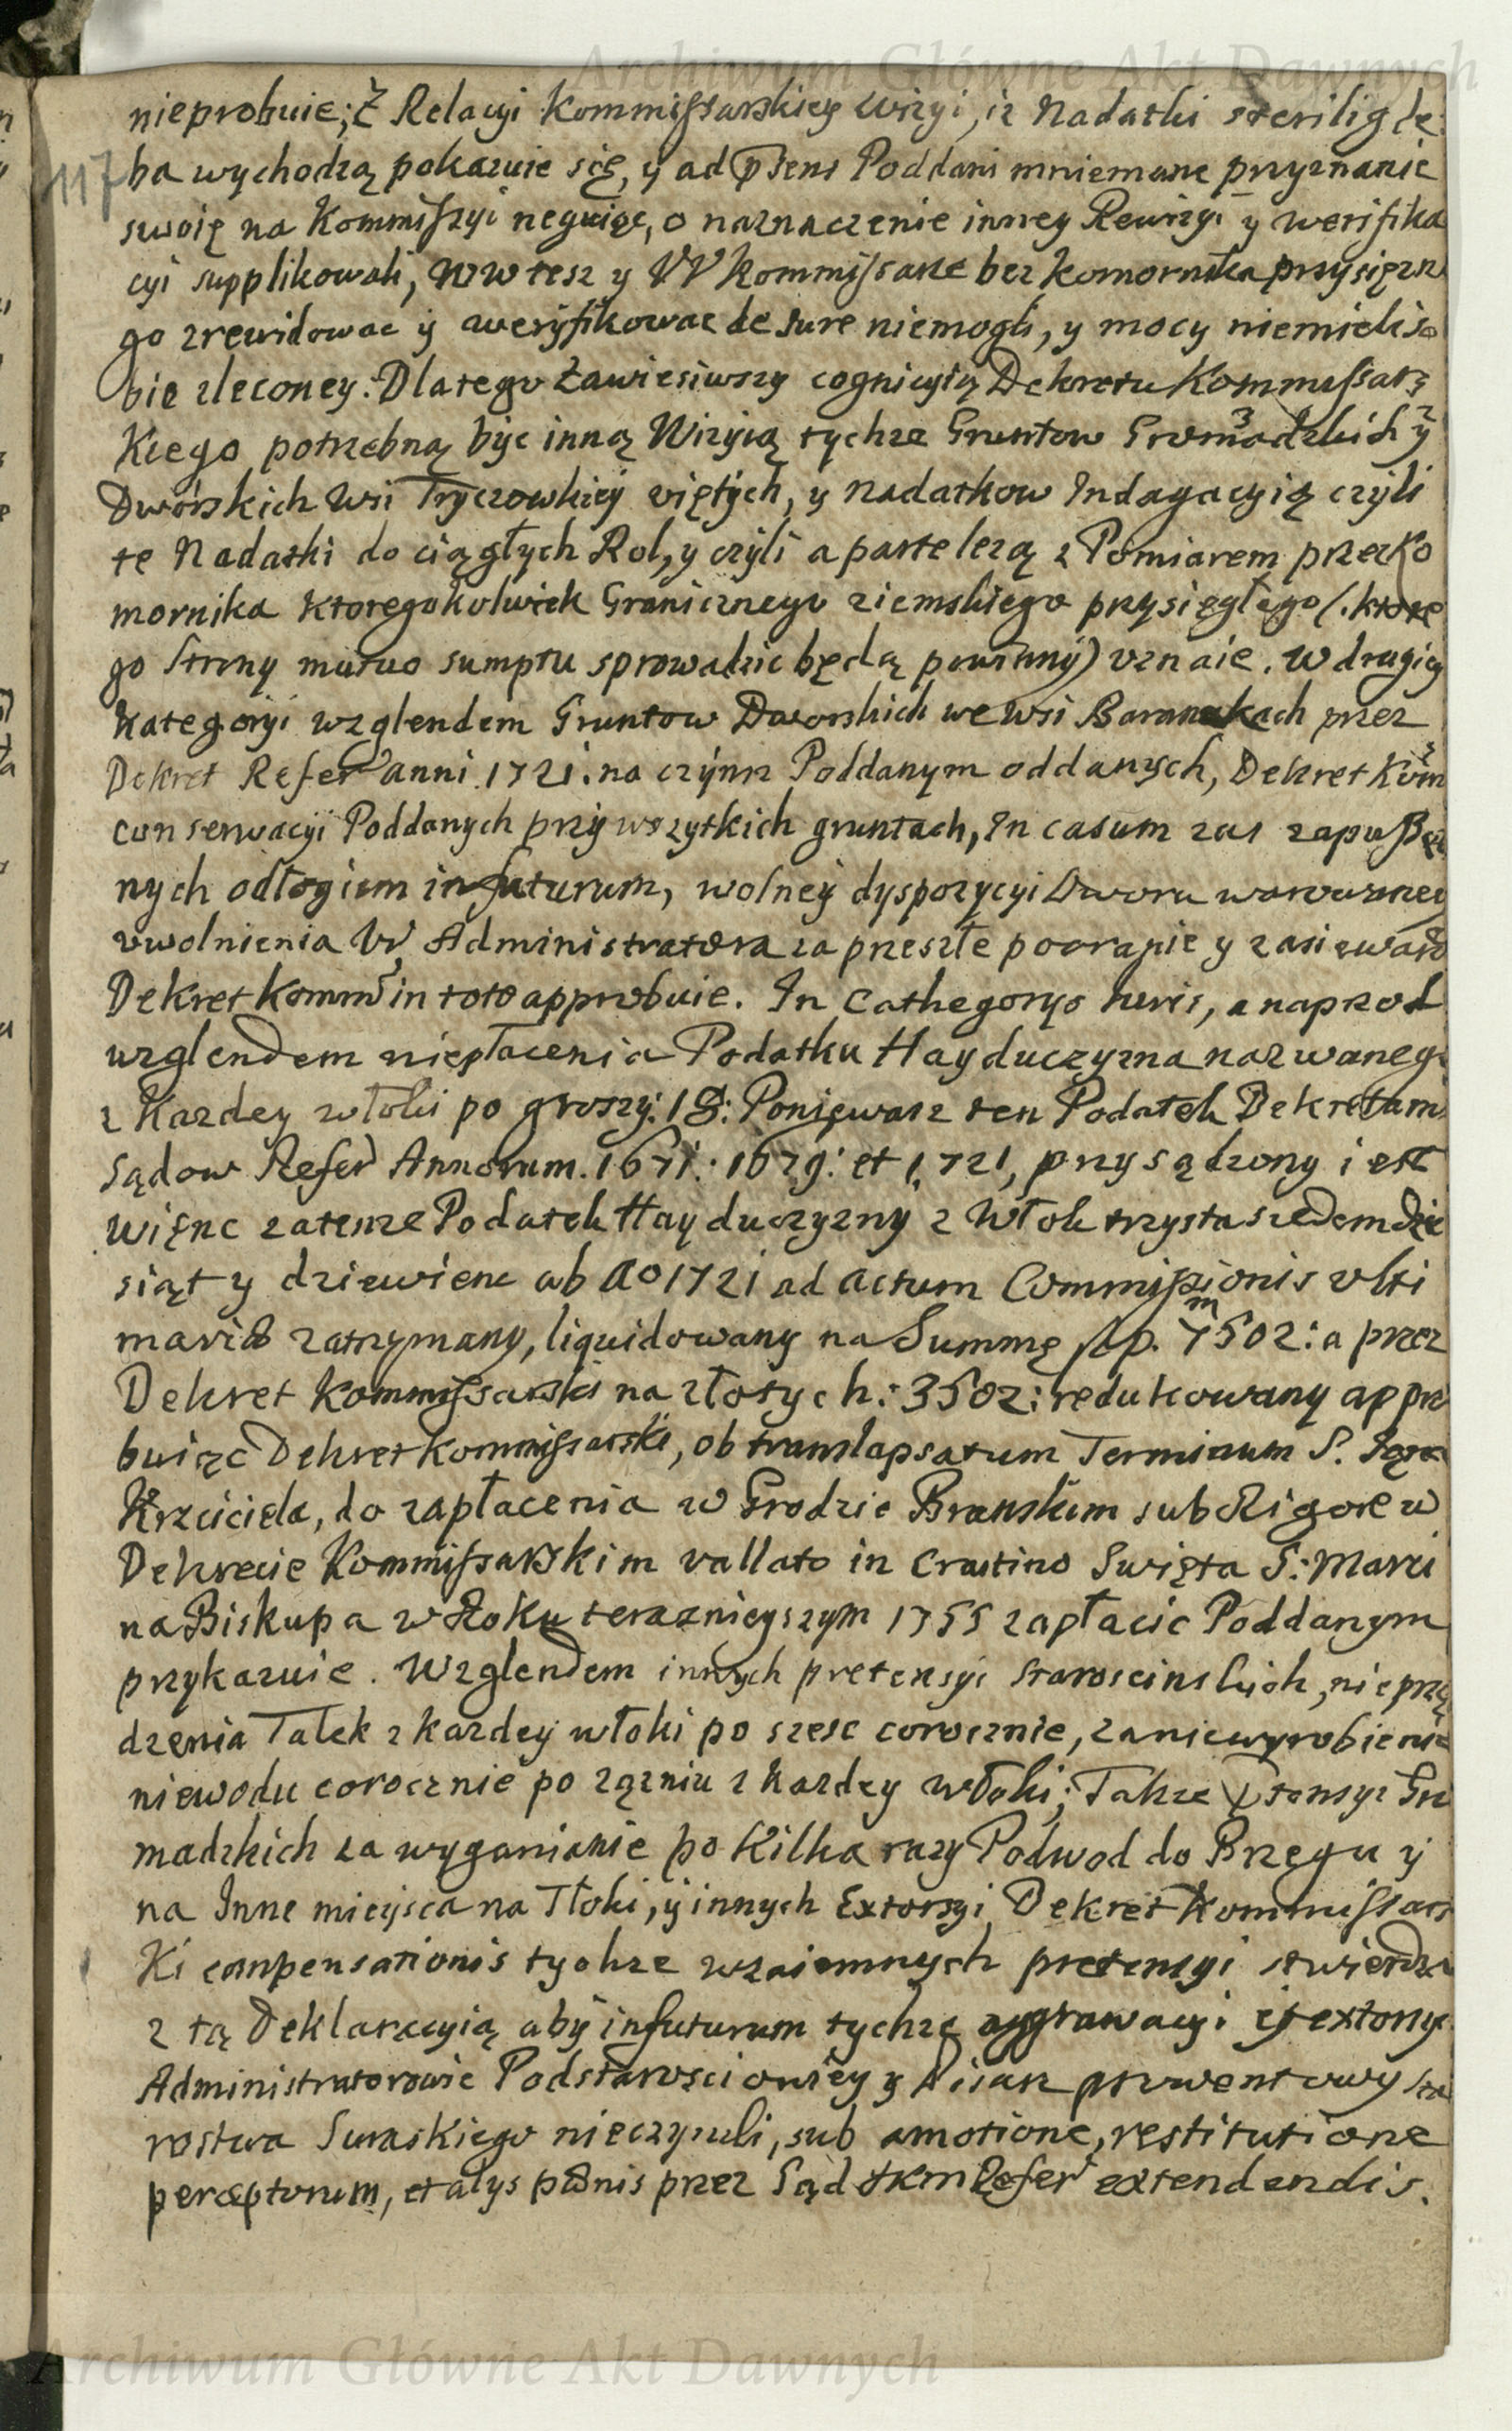 Archiwum Główne Akt Dawnych
nieprobuie; Z Relacyi Kommissarskiey Wizyi, iz Nadatki sterilis gle
117 ba wychodzą pokazuie się, y ad psens Poddani mniemane przyznanie
swoię na Kommissyi neguiąc, o naznaczenie inney Rewizyi y werifika
cyi supplikowali, WW tesz y VV Kommissarze bez Komornika przysięzn
go zrewidowac y weryfikowac de Jure niemogli, y mocy niemieli so
bie zleconey: Dlatego Zawiesiwszy cognicyią Dekretu Kommissars
Kiego potrzebną byc inną Wizyią tychze Gruntow Gromadzkich y
Dworskich Wsi Tryczowkiey viętych, y Nadatkow Indagacyią czyli
te Nadatki do ciągłych Rol, y czyli a parte lezą z Pomiarem przez Ko
mornika Ktoregokolwiek Granicznego ziemskiego przysięgłego (. ktore
go Strony mutuo sumptu sprowadzic będą powinny) vznaie. W drugiey
Kategoryi wzglendem Gruntow Dworskich we Wsi Baranekach przez
Dekret Refer anni 1721. na czynsz Poddanym oddanych, Dekret Kom̃
conserwacyi Poddanych przy wszytkich gruntach, in casum zas zapuszcz
nych odłogiem in futurum, wolney dyspozycyi Dworu warowaney
vwolnienia W. Administratora za przeszłe pooranie y zasiewanie
Dekret Komm̃ in toto approbuie. In Cathegorya heris, a naprzod
wzglendem niepłacenia Podatku Hayduczyzna nazwaneg
z Kazdey włoki po groszy: 18: Poniewasz ten Podatek Dekretam
Sądow Refer Annorum. 1671: 1679: et 1721, przysądzony iest
więnc zatenze Podatek Hayduczyzny z Włok trzysta siedemdzie
siąt y dziewienc ab Ao 1721 ad actum Commissionis vlti
maria zatrzymany, liquidowany na Summę flp. 7m 502: a przez
Dekret Kommissarski na złotych: 3502: redukowany appro
buiąc Dekret Kommissarski, ob translapsatum Terminum S. Jana
Krzciciela, do zapłacenia w Grodzie Branskim sub Rigore w
Dekrecie Kommissarskim vallato in Crastino Swięta S: Marci
na Biskupa w Roku teraznieyszym 1755 zapłacic Poddanym
przykazuie. Wzglendem innych pretensyi Staroscinskich, nieprzę
dzenia Talek z kazdey włoki po szesc corocznie, zaniewyrobienie
niewodu corocznie po sązniu z kazdey włoki; Takze Ptensyi Gro
madzkich za wyganianie po Kilka razy Podwod do Brzegu y
na Inne mieysca na Tłoki, y innych Extorsyi, Dekret Kommissars
Ki conpensationis tychze wzaiemnych pretensyi stwierdza
z tą Deklaracyią aby in futurum tychze aggrawacyi y extorsyi
Administratorowie Podstarosciowiey y Pisarz prowentowy Sta
rostwa Suraskiego nieczynili, sub amotione, restitutione
perceptorum, et alys pœnis przez Sąd tkm Refer extendendis.
Archiwum Główne Akt Dawnych